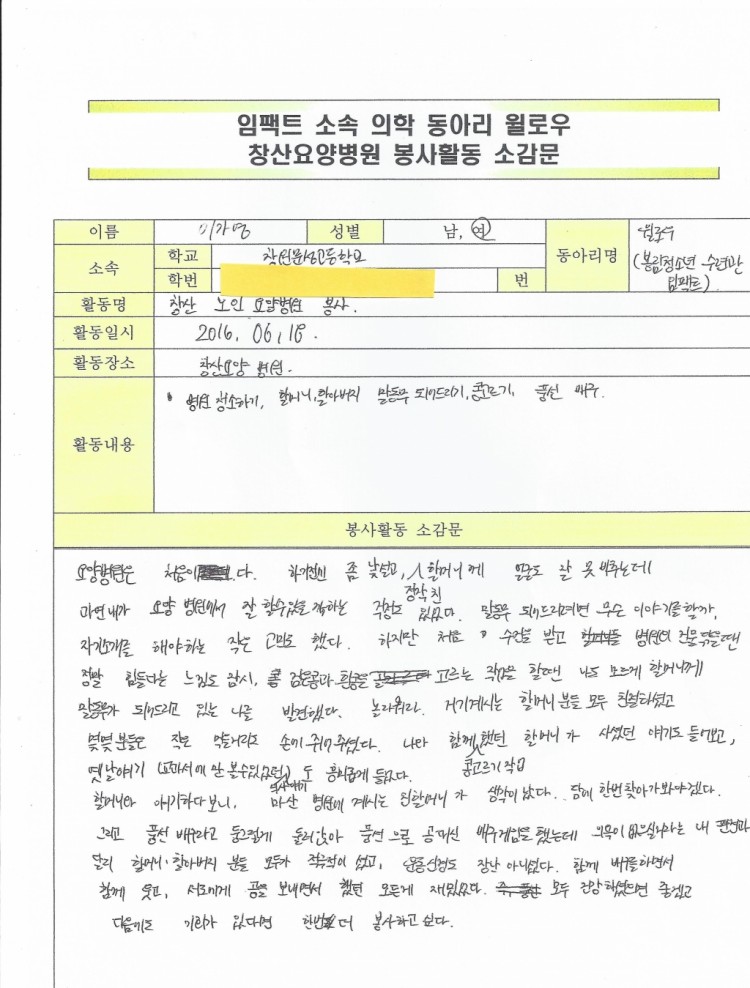 임팩트 소속 의학 동아리 윌로우
창산요양병원 봉사활동 소감문
이름 이가영 성별 남, 여 동아리명 윌로우 (봉림청소년 수련관 임팩트).
소속 학교 창원문성고등학교
학번 번
활동명 창산 노인 요양병원 봉사.
활동일시 2016. 06. 18.
활동장소 창산요양 병원.
활동내용 • 병원 청소하기, 할머니, 할아버지 말동무 되어드리기, 콩고르기, 풍선 배구.
봉사활동 소감문
요양병원은 처음이다. 하기전에 좀 낯설고, 할머니께 얼굴도 잘 못 비추는데
과연 내가 요양 병원에서 잘 할수있을까하는 걱정도 있었다. 말동무 되어드리려면 무슨 이야기를 할까,
자기소개를 해야하는 작은 고민도 했다. 하지만 처음 수건을 받고 병원의 건물 닦을땐
정말 힘들다는 느낌도 잠시, 콩 검은콩과 흰콩을 고르는 작업을 할땐 나도 모르게 할머니께
말동무가 되어드리고 있는 나를 발견했다. 놀라워라. 거기계시는 할머니 분들 모두 친절하셨고
몇몇분들은 작은 먹을거리도 손에 쥐어 주셨다. 나와 함께 콩고르기 작업 했던 할머니가 사셨던 얘기도 들어보고,
옛날얘기 (교과서에 안 볼수있었던) 역사얘기 도 흥미롭게 들었다.
할머니와 얘기하다보니, 마산 병원에 계시는 친할머니가 생각이 났다.. 담에 한번찾아가봐야겠다.
그리고 풍선 배구라고 둥그렇게 둘러앉아 풍선으로 공대신 배구게임을 했는데 의욕이 없으실거라는 내 편견과
달리 할머니·할아버지 분들 모두가 적극적이 었고, 운동신경도 장난 아니셨다. 함께 배구를하면서
함께 웃고, 서로에게 공을 보내면서 했던 모든게 재밌었다. 모두 건강하셨으면 좋겠고
다음에도 기회가 있다면 한번 더 봉사하고 싶다.